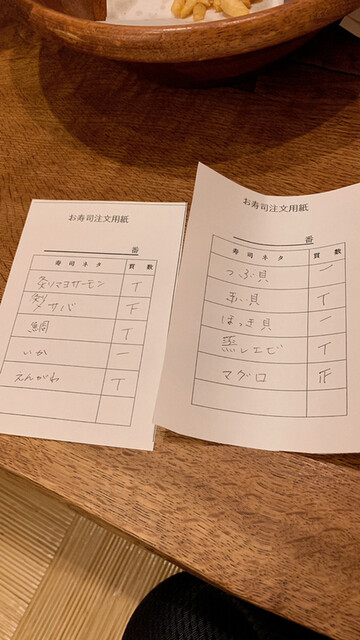 お寿司注文用紙
番
寿司ネタ 貫数
炙りマヨサーモン T
サバ F
鯛 T
いか 一
えんがわ T
お寿司注文用紙
番
寿司ネタ 貫数
つぶ貝 一
赤貝 T
ほっき貝 一
蒸しエビ T
マグロ